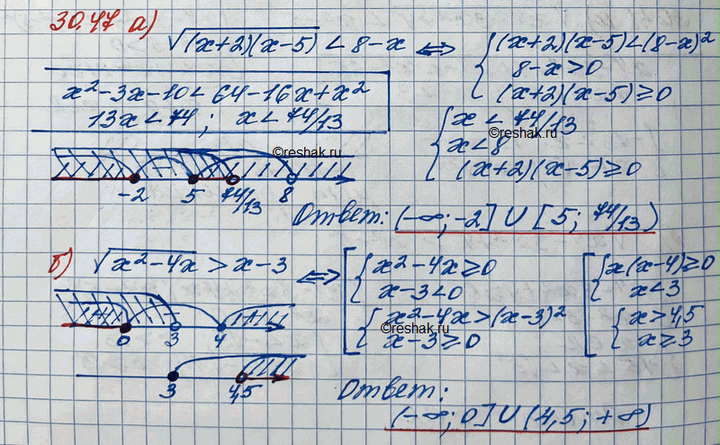 30.47 а)
√(x+2)(x-5) < 8-x ⟺ { (x+2)(x-5)<(8-x)²
8-x>0
(x+2)(x-5)≥0
x²-3x-10<64-16x+x²
13x<74; x<74/13
{ x < 74/13
x<8
(x+2)(x-5)≥0
©reshak.ru
©reshak.ru
-2 5 74/13 8
Ответ: (-∞;-2] U [5; 74/13)
б) √x²-4x > x-3 ⟺ [ { x²-4x≥0
x-3<0
{ x²-4x>(x-3)²
x-3≥0
[ { x(x-4)≥0
x<3
{ x>4,5
x≥3
©reshak.ru
0 3 4
3 4,5
Ответ:
(-∞;0] U (4,5; +∞)